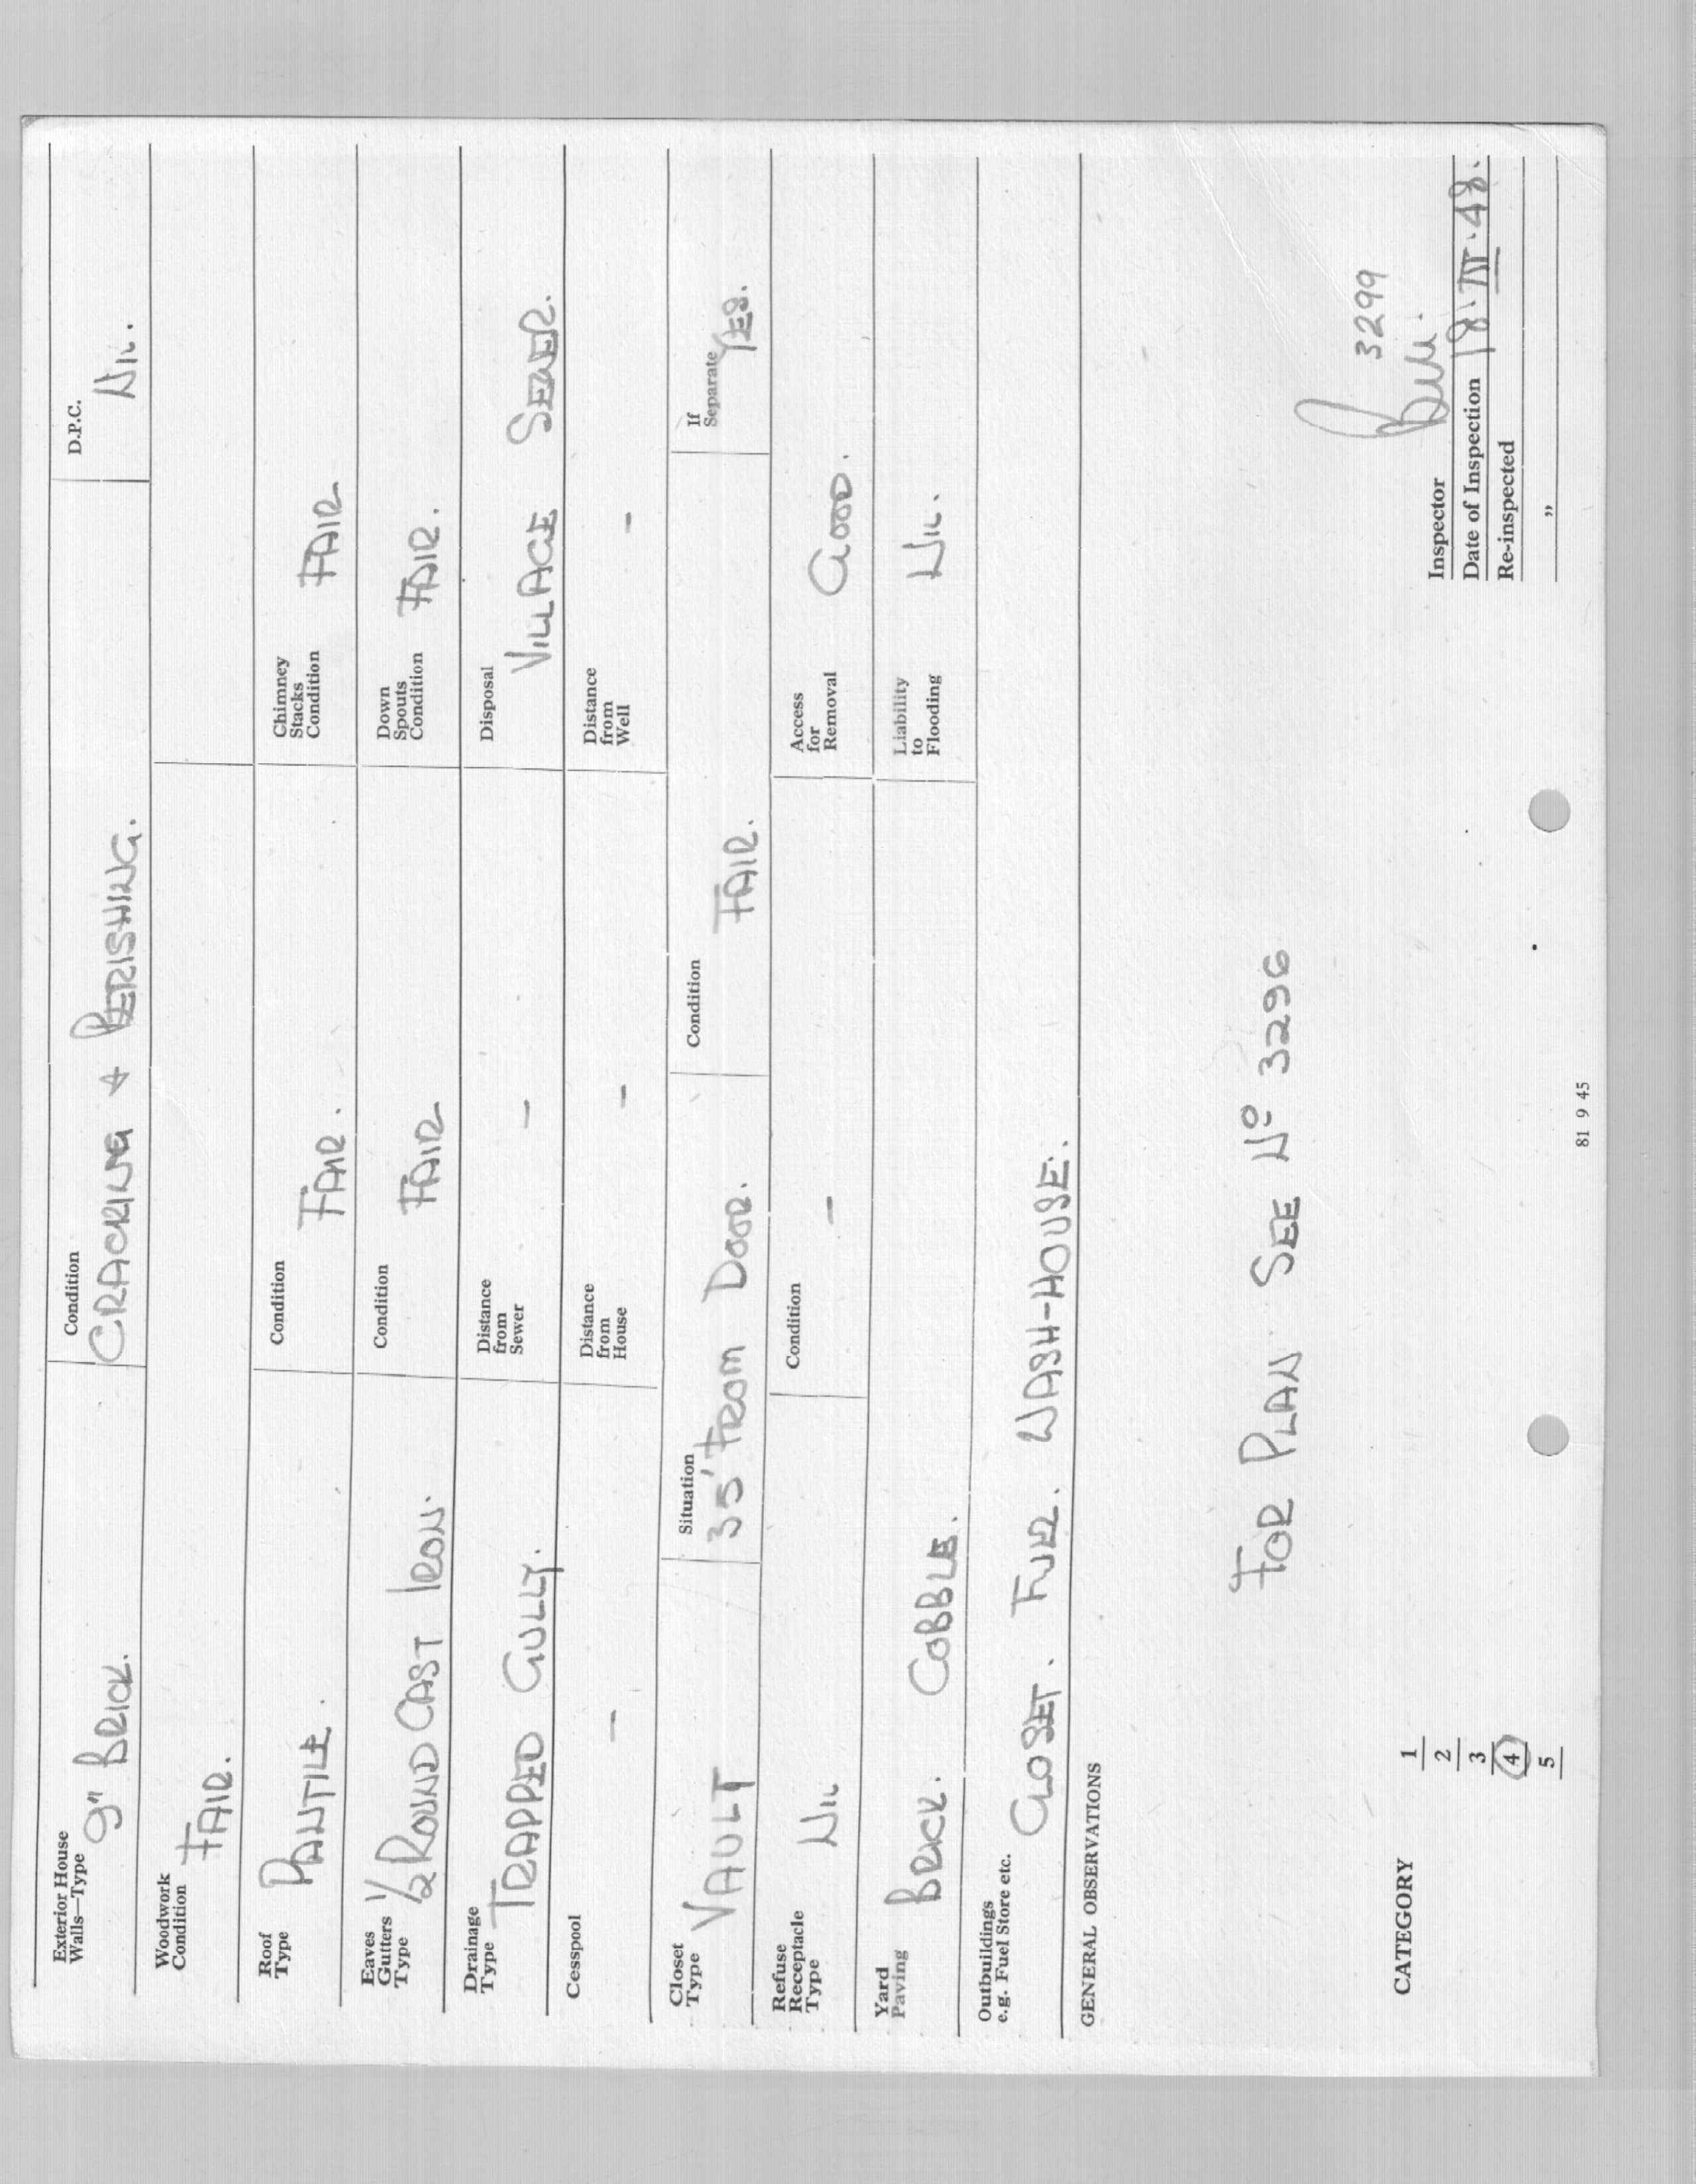 Exterior House Walls—Type 9" BRICK. Condition CRACKING & PERISHING. D.P.C. NIL.
Woodwork Condition FAIR.
Roof Type PANTILE. Condition FAIR. Chimney Stacks Condition FAIR
Eaves Gutters Type 1/2 ROUND CAST IRON. Condition FAIR Down Spouts Condition FAIR.
Drainage Type TRAPPED GULLY. Distance from Sewer – Disposal VILLAGE SEWER.
Cesspool – Distance from House – Distance from Well –
Closet Type VAULT Situation 35' FROM DOOR. Condition FAIR. If Separate YES.
Refuse Receptacle Type NIL Condition – Access for Removal GOOD.
Yard Paving BRICK. COBBLE. Liability to Flooding NIL.
Outbuildings e.g. Fuel Store etc. CLOSET. FUEL. WASH-HOUSE.
GENERAL OBSERVATIONS
FOR PLAN SEE No 3296
3299
CATEGORY
1
2
3
4
5
Inspector
Date of Inspection 18.III.48.
Re-inspected
„
81 9 45